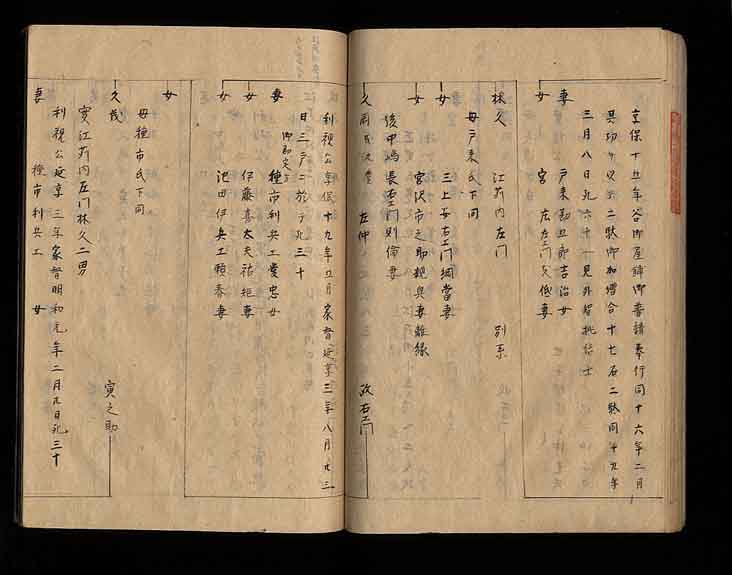 享保十五年谷御屋鋪御普請奉行同十六年二月
其功ヲ以六二駄御加増合十七石二駄同十九年
三月八日死六十一見外智挑信士
妻 戸来勘五郎吉治女
女 宮 庄左エ門久低妻
林久 江苅内左門 別系
母戸来氏下同
女 三上安右エ門綱當妻
女 宮沢市之助規與妻離縁
後中嶋長右エ門則倫妻
久 左仲 政右エ門
利視公享保十九年五月家督延享三年八月廿三
日三戸ニ於テ死三十 御勘定方
妻 種市利兵エ愛忠女
女 伊藤喜太夫祐矩妻
女 池田伊兵エ頼泰妻
女
久茂 寅之助
母種市氏下同
實江苅内左門林久二男
利視公延享三年家督明和元年二月九日死三十
妻 種市利兵エ 女